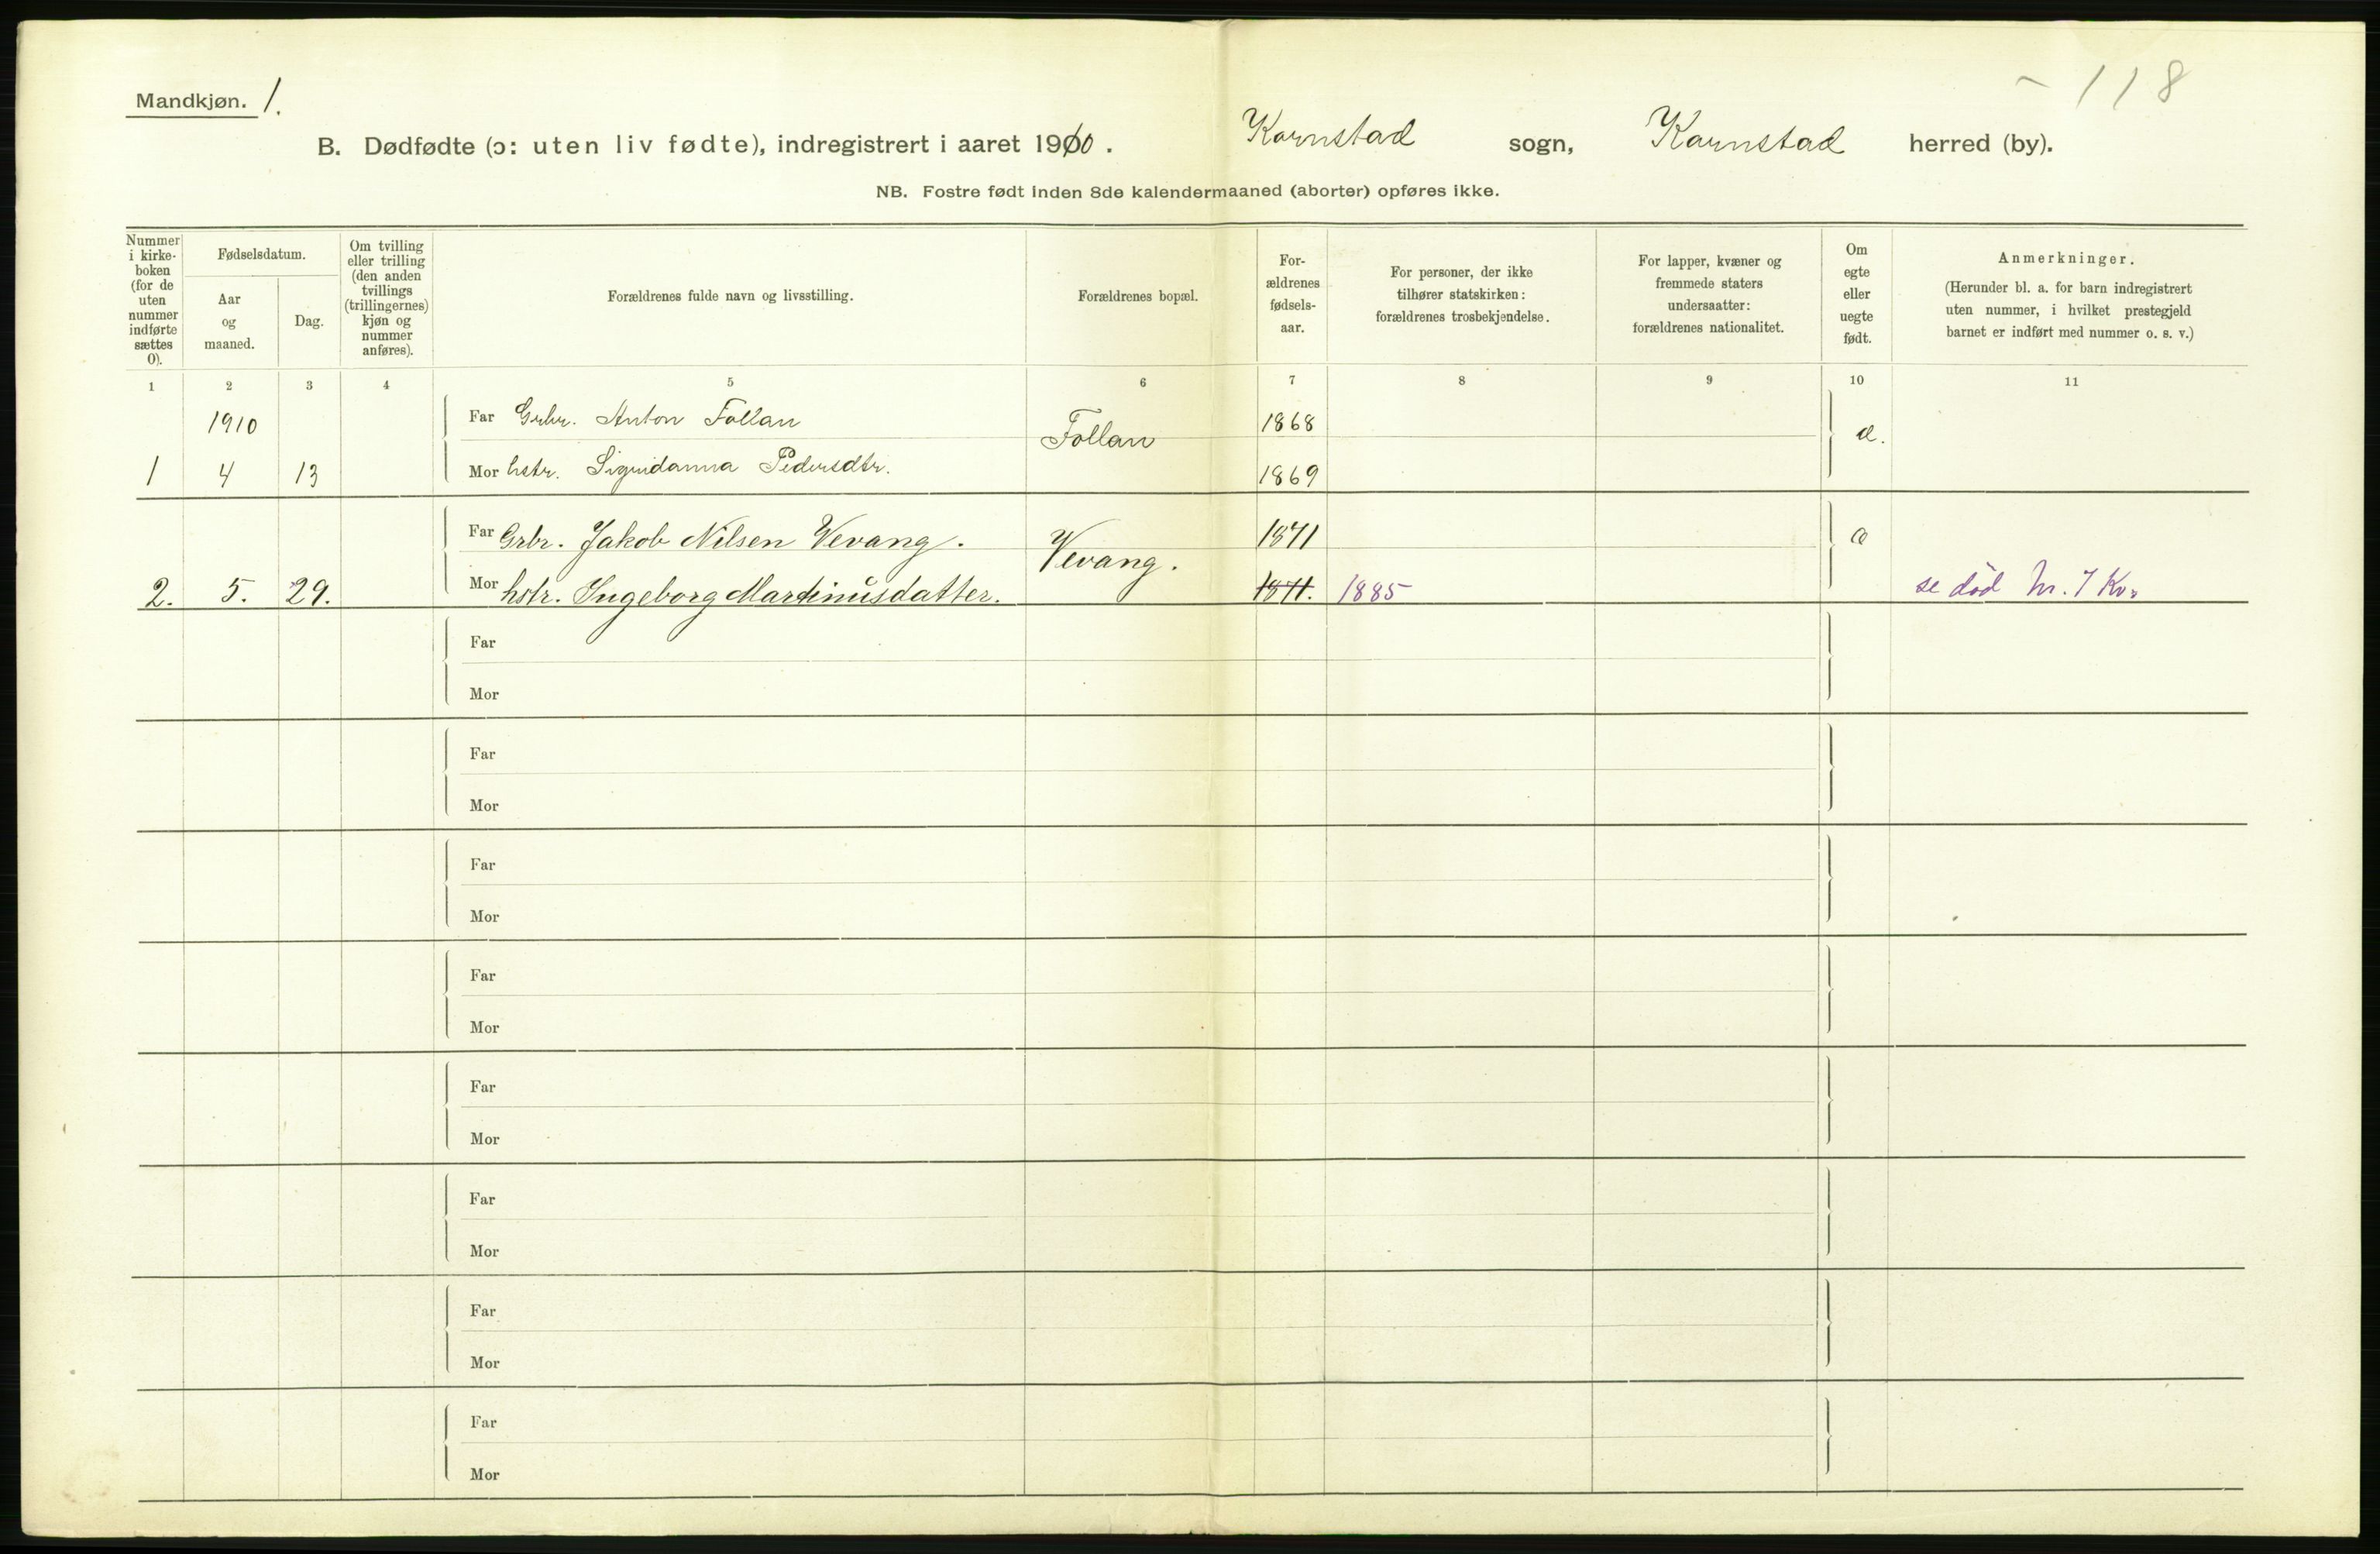 Mandkjøn. 1.
118
B. Dødfødte (ɔ: uten liv fødte), indregistrert i aaret 1910. Kornstad sogn, Kornstad herred (by).
NB. Fostre født inden 8de kalendermaaned (aborter) opføres ikke.
Nummer
i kirke-
boken
(for de
uten
nummer
indførte
sættes
0).
Fødselsdatum.
Aar
og
maaned.
Dag.
Om tvilling
eller trilling
(den anden
tvillings
(trillingernes)
kjøn og
nummer
anføres).
Forældrenes fulde navn og livsstilling.
Forældrenes bopæl.
For-
ældrenes
fødsels-
aar.
For personer, der ikke
tilhører statskirken:
forældrenes trosbekjendelse.
For lapper, kvæner og
fremmede staters
undersaatter:
forældrenes nationalitet.
Om
egte
eller
uegte
født.
Anmerkninger.
(Herunder bl. a. for barn indregistrert
uten nummer, i hvilket prestegjeld
barnet er indført med nummer o. s. v.)
1 2 3 4 5 6 7 8 9 10 11
1910 Far Grbr. Anton Follan Follan 1868 æ.
1 4 13 Mor hstr. Sigridanna Pedersdtr. 1869
Far Grbr. Jakob Nilsen Vevang. Vevang. 1871 æ
2. 5. 29. Mor hstr. Ingeborg Martinusdatter. 1871. 1885 se død Nr. 7 Kv.
Far
Mor
Far
Mor
Far
Mor
Far
Mor
Far
Mor
Far
Mor
Far
Mor
Far
Mor